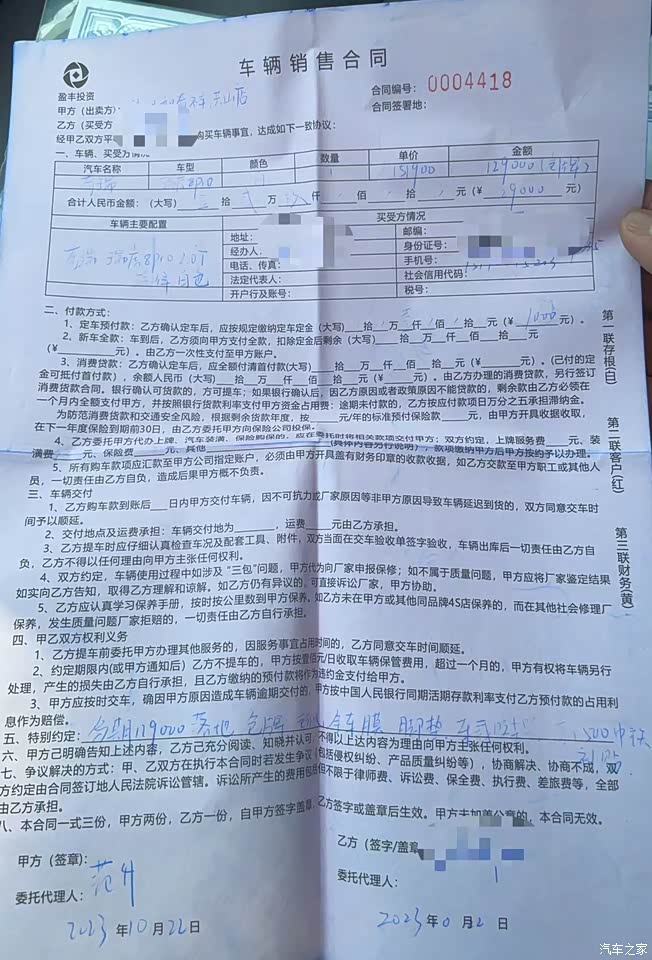 车辆销售合同
盈丰投资
合同编号: 0004418
甲方（出卖方）:
合同签署地:
乙方（买受方
经甲乙双方平 购买车辆事宜，达成如下一致协议：
一、车辆、买受方情况
汽车名称 车型 颜色 数量 单价 金额
1 151900 129000
合计人民币金额:（大写） 拾 万 仟 佰 拾 元（¥ 29000 元）
车辆主要配置 买受方情况
地址: 邮编:
经办人: 身份证号:
电话、传真: 手机号:
法定代表人: 社会信用代码:
开户行及账号: 税号:
2.0T
二、付款方式：
1、定车预付款：乙方确认定车后，应按规定缴纳定车定金（大写） 拾 万 仟 佰 拾 元（¥ 1000 元）。
2、新车全款：车到后，乙方须向甲方支付全款，扣除定金后剩余（大写） 拾 万 仟 佰 拾 元
（¥ 元）。由乙方一次性支付至甲方账户。
3、消费贷款：乙方确认定车后，应全额付清首付款(大写) 拾 万 仟 佰 拾 元（¥ 元）。(已付的定
金可抵付首付款），余额人民币（大写） 拾 万 仟 佰 拾 元（¥ 元）。由乙方办理的消费贷款，另行签订
消费贷款合同。银行确认可贷款的，方可提车；如果银行确认后，因乙方原因或者政策原因不能贷款的，剩余款由乙方必须在
一个月内全额支付甲方，并按照银行贷款利率支付甲方资金占用费；逾期未付款的，乙方按应付款项日万分之五承担滞纳金。
为防范消费贷款和交通安全风险，根据剩余贷款年度，按 元/年的标准预付保险款 元，由甲方开具收据收取，
在下一年度保险到期前30日，由乙方委托甲方向保险公司投保。
4、乙方委托甲方代办上牌、汽车装潢、保险购保的，应在委托时将相关款项交付甲方；双方约定，上牌服务费 元、装
潢费 元、保险费 元、其他 款项缴纳后甲方按约予以办理。
5、所有购车款项应汇款至甲方公司指定账户，必须由甲方开具盖有财务印章的收款收据，如乙方交款至甲方职工或其他人
员，一切责任由乙方自负，造成后果甲方概不负责。
三、车辆交付
1、乙方购车款到账后 日内甲方交付车辆，因不可抗力或厂家原因等非甲方原因导致车辆延迟到货的，双方同意交车时
间予以顺延。
2、交付地点及运费承担：车辆交付地为 ，运费 元由乙方承担。
3、乙方提车时应仔细认真检查车况及配套工具、附件，双方当面在交车验收单签字验收，车辆出库后一切责任由乙方自
负，乙方不得以任何理由向甲方主张任何权利。
4、双方约定，车辆使用过程中如涉及“三包”问题，甲方代为向厂家申报保修；如不属于质量问题，甲方应将厂家鉴定结果
如实向乙方告知，取得乙方理解和谅解。如乙方仍有异议的，可直接诉讼厂家，甲方协助。
5、乙方应认真学习保养手册，按时按公里数到甲方保养，如乙方未在甲方或其他同品牌4S店保养的，而在其他社会修理厂
保养，发生质量问题厂家拒赔的，一切责任由乙方自行承担。
四、甲乙双方权利义务
1、乙方提车前委托甲方办理其他服务的，因服务事宜占用时间的，乙方同意交车时间顺延。
2、约定期限内(或甲方通知后）乙方不提车的，甲方按壹佰元/日收取车辆保管费用，超过一个月的，甲方有权将车辆另行
处理，产生的损失由乙方自行承担，且乙方缴纳的预付款将作为违约金支付给甲方。
3、甲方应按时交车，确因甲方原因造成车辆逾期交付的，甲方按中国人民银行同期活期存款利率支付乙方预付款的占用利
息作为赔偿。
五、特别约定： 129000 落地 包牌 全车膜 脚垫 1500
六、甲方已明确告知上述内容，乙方已充分阅读、知晓并认可，不得以上达内容为理由向甲方主张任何权利。
七、争议解决的方式：甲、乙双方在执行本合同时若发生争议（包括侵权纠纷、产品质量纠纷等），协商解决、协商不成，双
方约定由合同签订地人民法院诉讼管辖。诉讼所产生的费用包括但不限于律师费、诉讼费、保全费、执行费、差旅费等，全部
由乙方承担。
八、本合同一式三份，甲方两份，乙方一份，自甲方签字盖章，乙方签字或盖章后生效。甲方未加盖公章的，本合同无效。
甲方（签章）: 乙方（签字/盖章
委托代理人: 委托代理人:
2023 年 10 月 22 日 2023 年 0 月 2 日
第一联存根(白)
第二联客户(红)
第三联财务(黄)
汽车之家